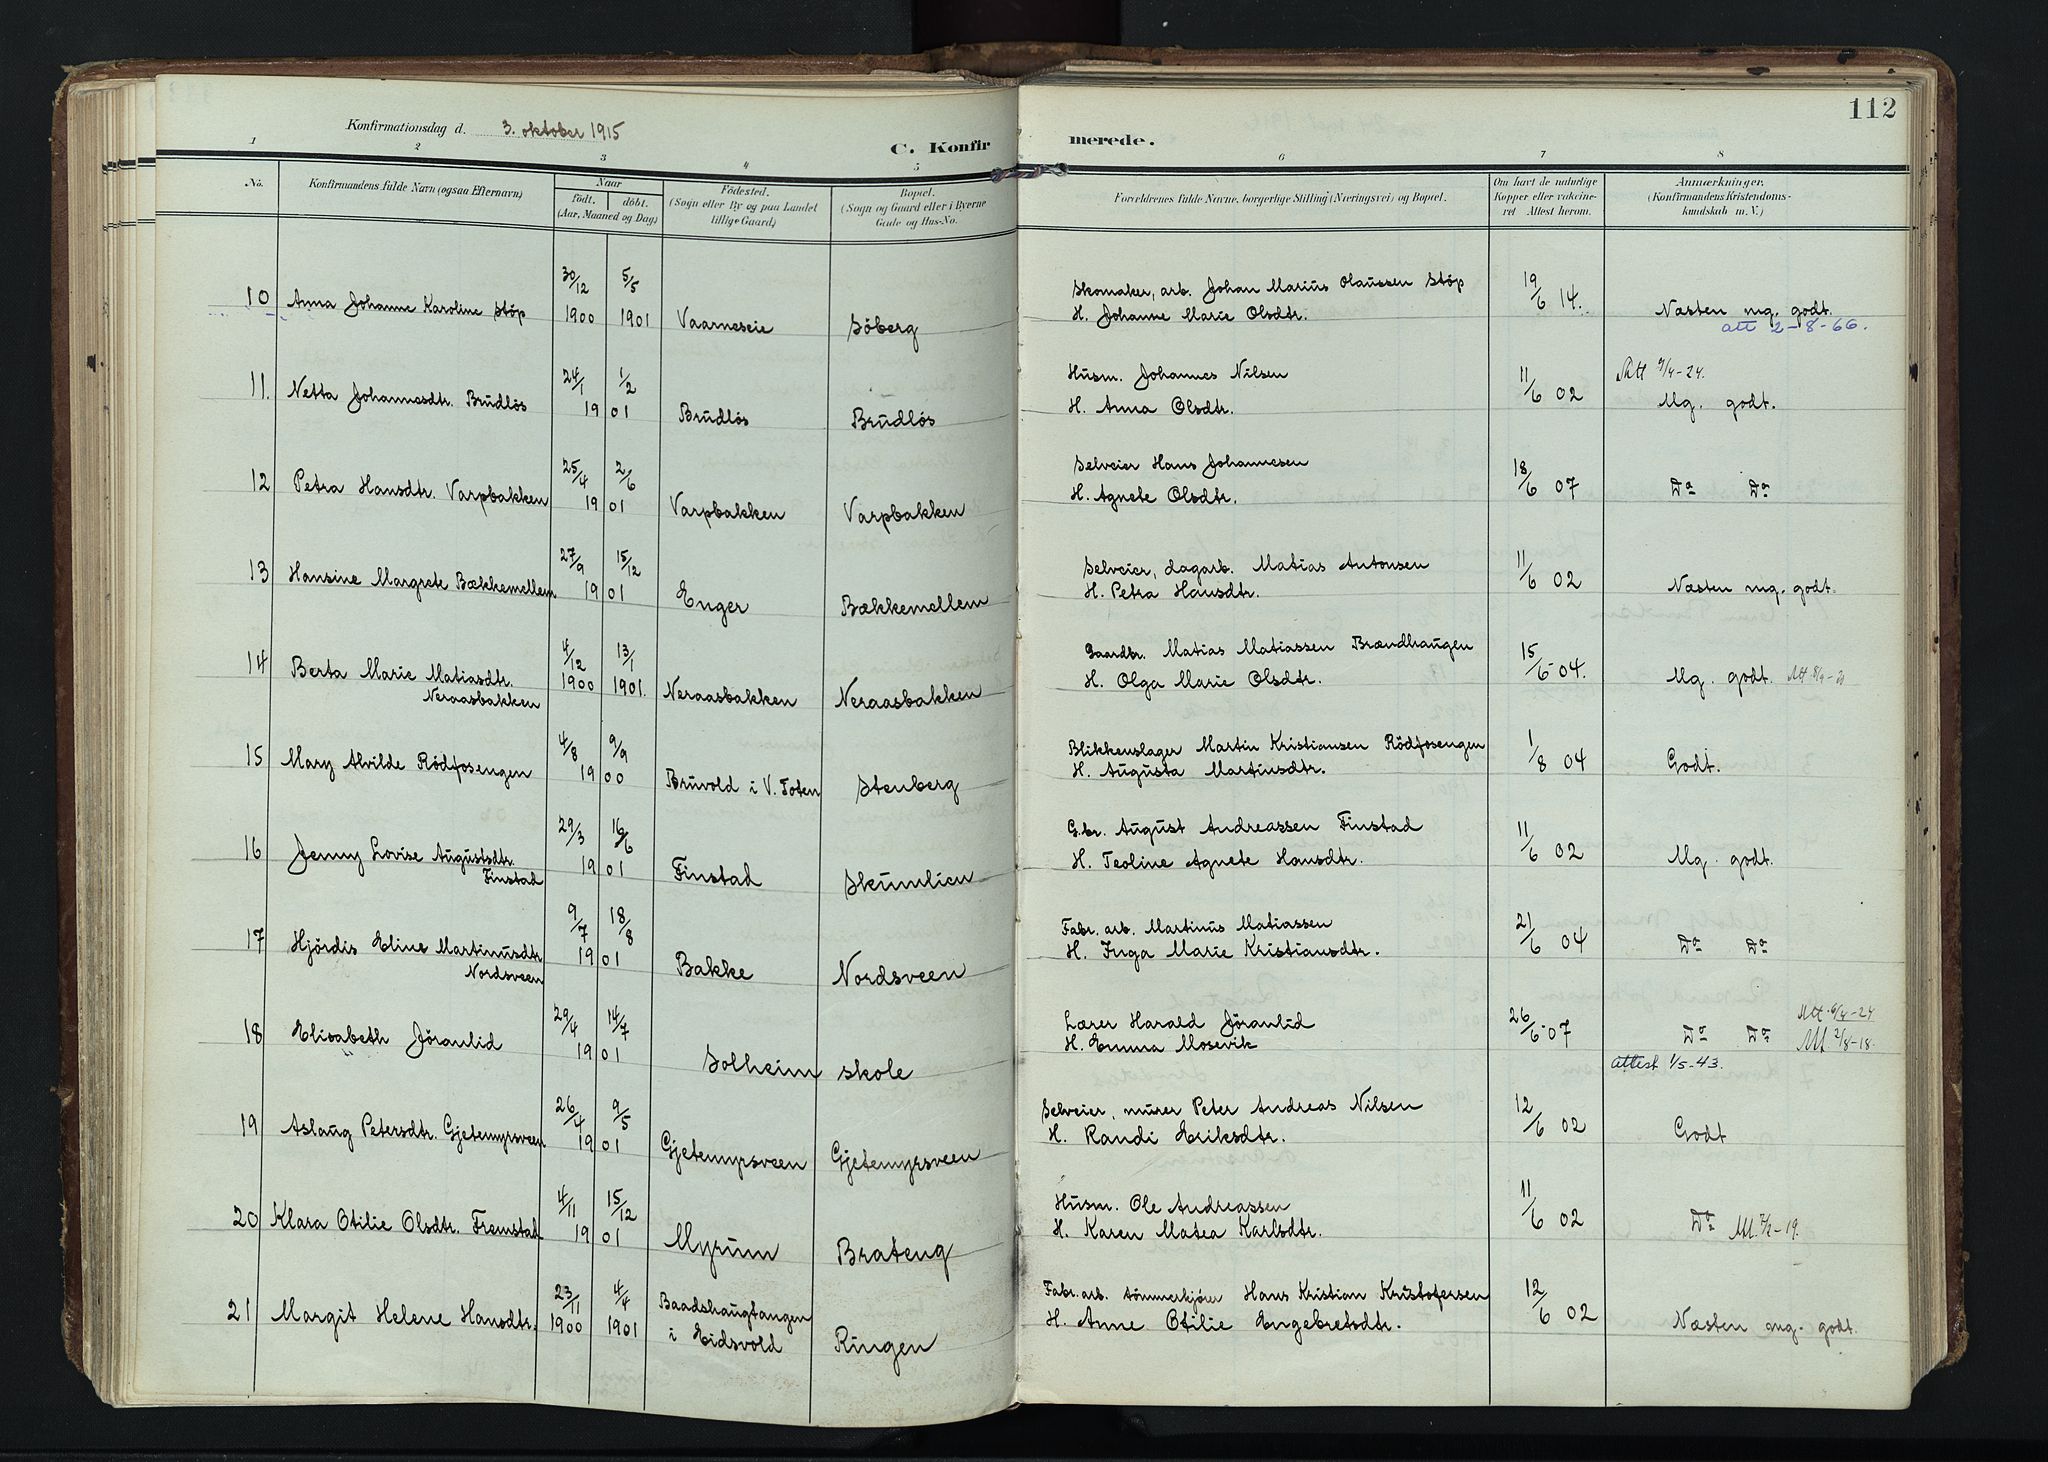 112
Konfirmationsdag d. 3. oktober 1915
C. Konfirmerede.
1 2 3 4 5 6 7 8
No. Konfirmandens fulde Navn (ogsaa Efternavn) Naar født. døbt. (Aar, Maaned og Dag) Fødested. (Sogn eller By og paa Landet tillige Gaard) Bopæl. (Sogn og Gaard eller i Byerne Gade og Hus-No. Forældrenes fulde Navne, borgerlige Stilling (Næringsvei) og Bopæl. Om havt de naturlige Kopper eller vakcineret Attest herom. Anmærkninger. (Konfirmandens Kristendomskundskab m. V.)
10 Anna Johanne Karoline Støp 30/12 1900 5/5 1901 Vaarneseie Søberg Skomaker, arb. Johan Marius Olaussen Støp
H. Johanne Marie Olsdtr. 19/6 14. Næsten mg. godt.
att 2-8-66.
11. Netta Johannesdtr. Brudløs 24/1 1/2 1901 Brudløs Brudløs Husm. Johannes Nilsen
H. Anna Olsdtr. 11/6 02 Mg. godt.
12 Petra Hansdtr. Varpbakken 25/4 2/6 1901 Varpbakken Varpbakken Selveier Hans Johannesen
H. Agnete Olsdtr. 18/6 07 Do Do
13 Hansine Margrete Bækkemellem 27/9 15/12 1901 Enger Bækkemellem Selveier, dagarb. Matias Antonsen
H. Petra Hansdtr. 11/6 02 Næsten mg. godt.
14 Berta Marie Matiasdtr.
Neraasbakken 4/12 1900 13/1 1901. Neraasbakken Neraasbakken Gaardbr. Matias Matiassen Brændhaugen
H. Olga Marie Olsdtr. 15/6-04. Mg. godt.
15 Mary Alvilde Rødfosengen 4/8 9/9 1900 Bruvold i V. Toten Stenberg Blikkenslager Martin Kristiansen Rødfosengen
H. Augusta Martinsdtr. 1/8 04 Godt.
16 Jenny Lovise Augustsdtr.
Finstad 29/3 16/6 1901 Finstad Skumlien G.br. August Andreassen Finstad
H. Teoline Agnete Hansdtr. 11/6 02 Mg. godt.
17 Hjørdis Eline Martinusdtr
Nordsveen 9/7 18/8 1901 Bakke Nordsveen Fabr. arb. Martinus Matiassen
H. Inga Marie Kristiansdtr. 21/6 04 Do Do
18 Elisabeth Jøranlid 29/4 14/7 1901 Solheim skole Lærer Harald Jøranlid
H. Emma Mosevik 26/6-07 Do Do
attest 1/5-43.
19 Aslaug Petersdtr. Gjetemyrsveen 26/4 9/5 1901 Gjetemyrsveen Gjetemyrsveen Selveier, murer Peter Andreas Nilsen
H. Randi Eriksdtr. 12/6 02 Godt
20 Klara Otilie Olsdtr. Fremstad 4/11 15/12 1901 Myrum Brateng Husm. Ole Andreassen
H. Karen Matea Karlsdtr. 11/6 02 Do
21 Margit Helene Hansdtr. 23/11 1900 4/4 1901 Baadshaugtangen i Eidsvold Ringen Fabr. arb. tømmerkjører Hans Kristian Kristofersen
H. Anne Otilie Engebretsdtr. 12/6 02 Næsten mg. godt.